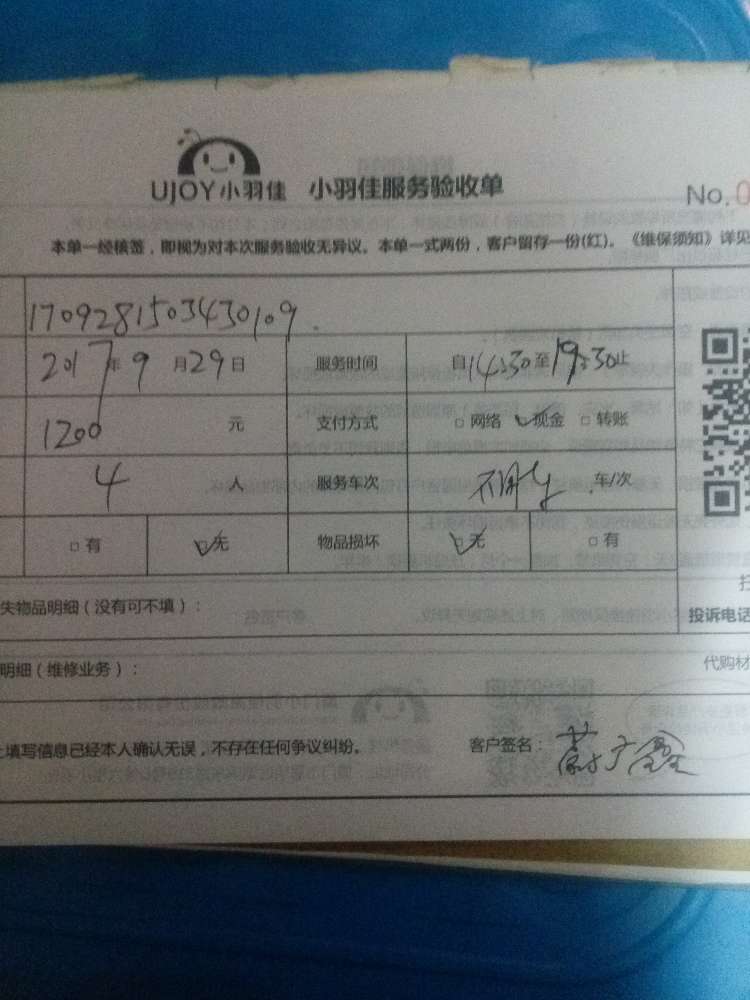 UJOY小羽佳 小羽佳服务验收单
No.0
本单一经核签，即视为对本次服务验收无异议。本单一式两份，客户留存一份(红)。《维保须知》详见
1709281503430109
2017年9月29日 服务时间 自14:30至19:30止
1200 元 支付方式 □网络 ☑现金 □转账
4 人 服务车次 不用车 车/次
□有 ☑无 物品损坏 ☑无 □有
扫
失物品明细（没有可不填）： 投诉电话
明细（维修业务）： 代购材
上填写信息已经本人确认无误，不存在任何争议纠纷。 客户签名：蔚广鑫